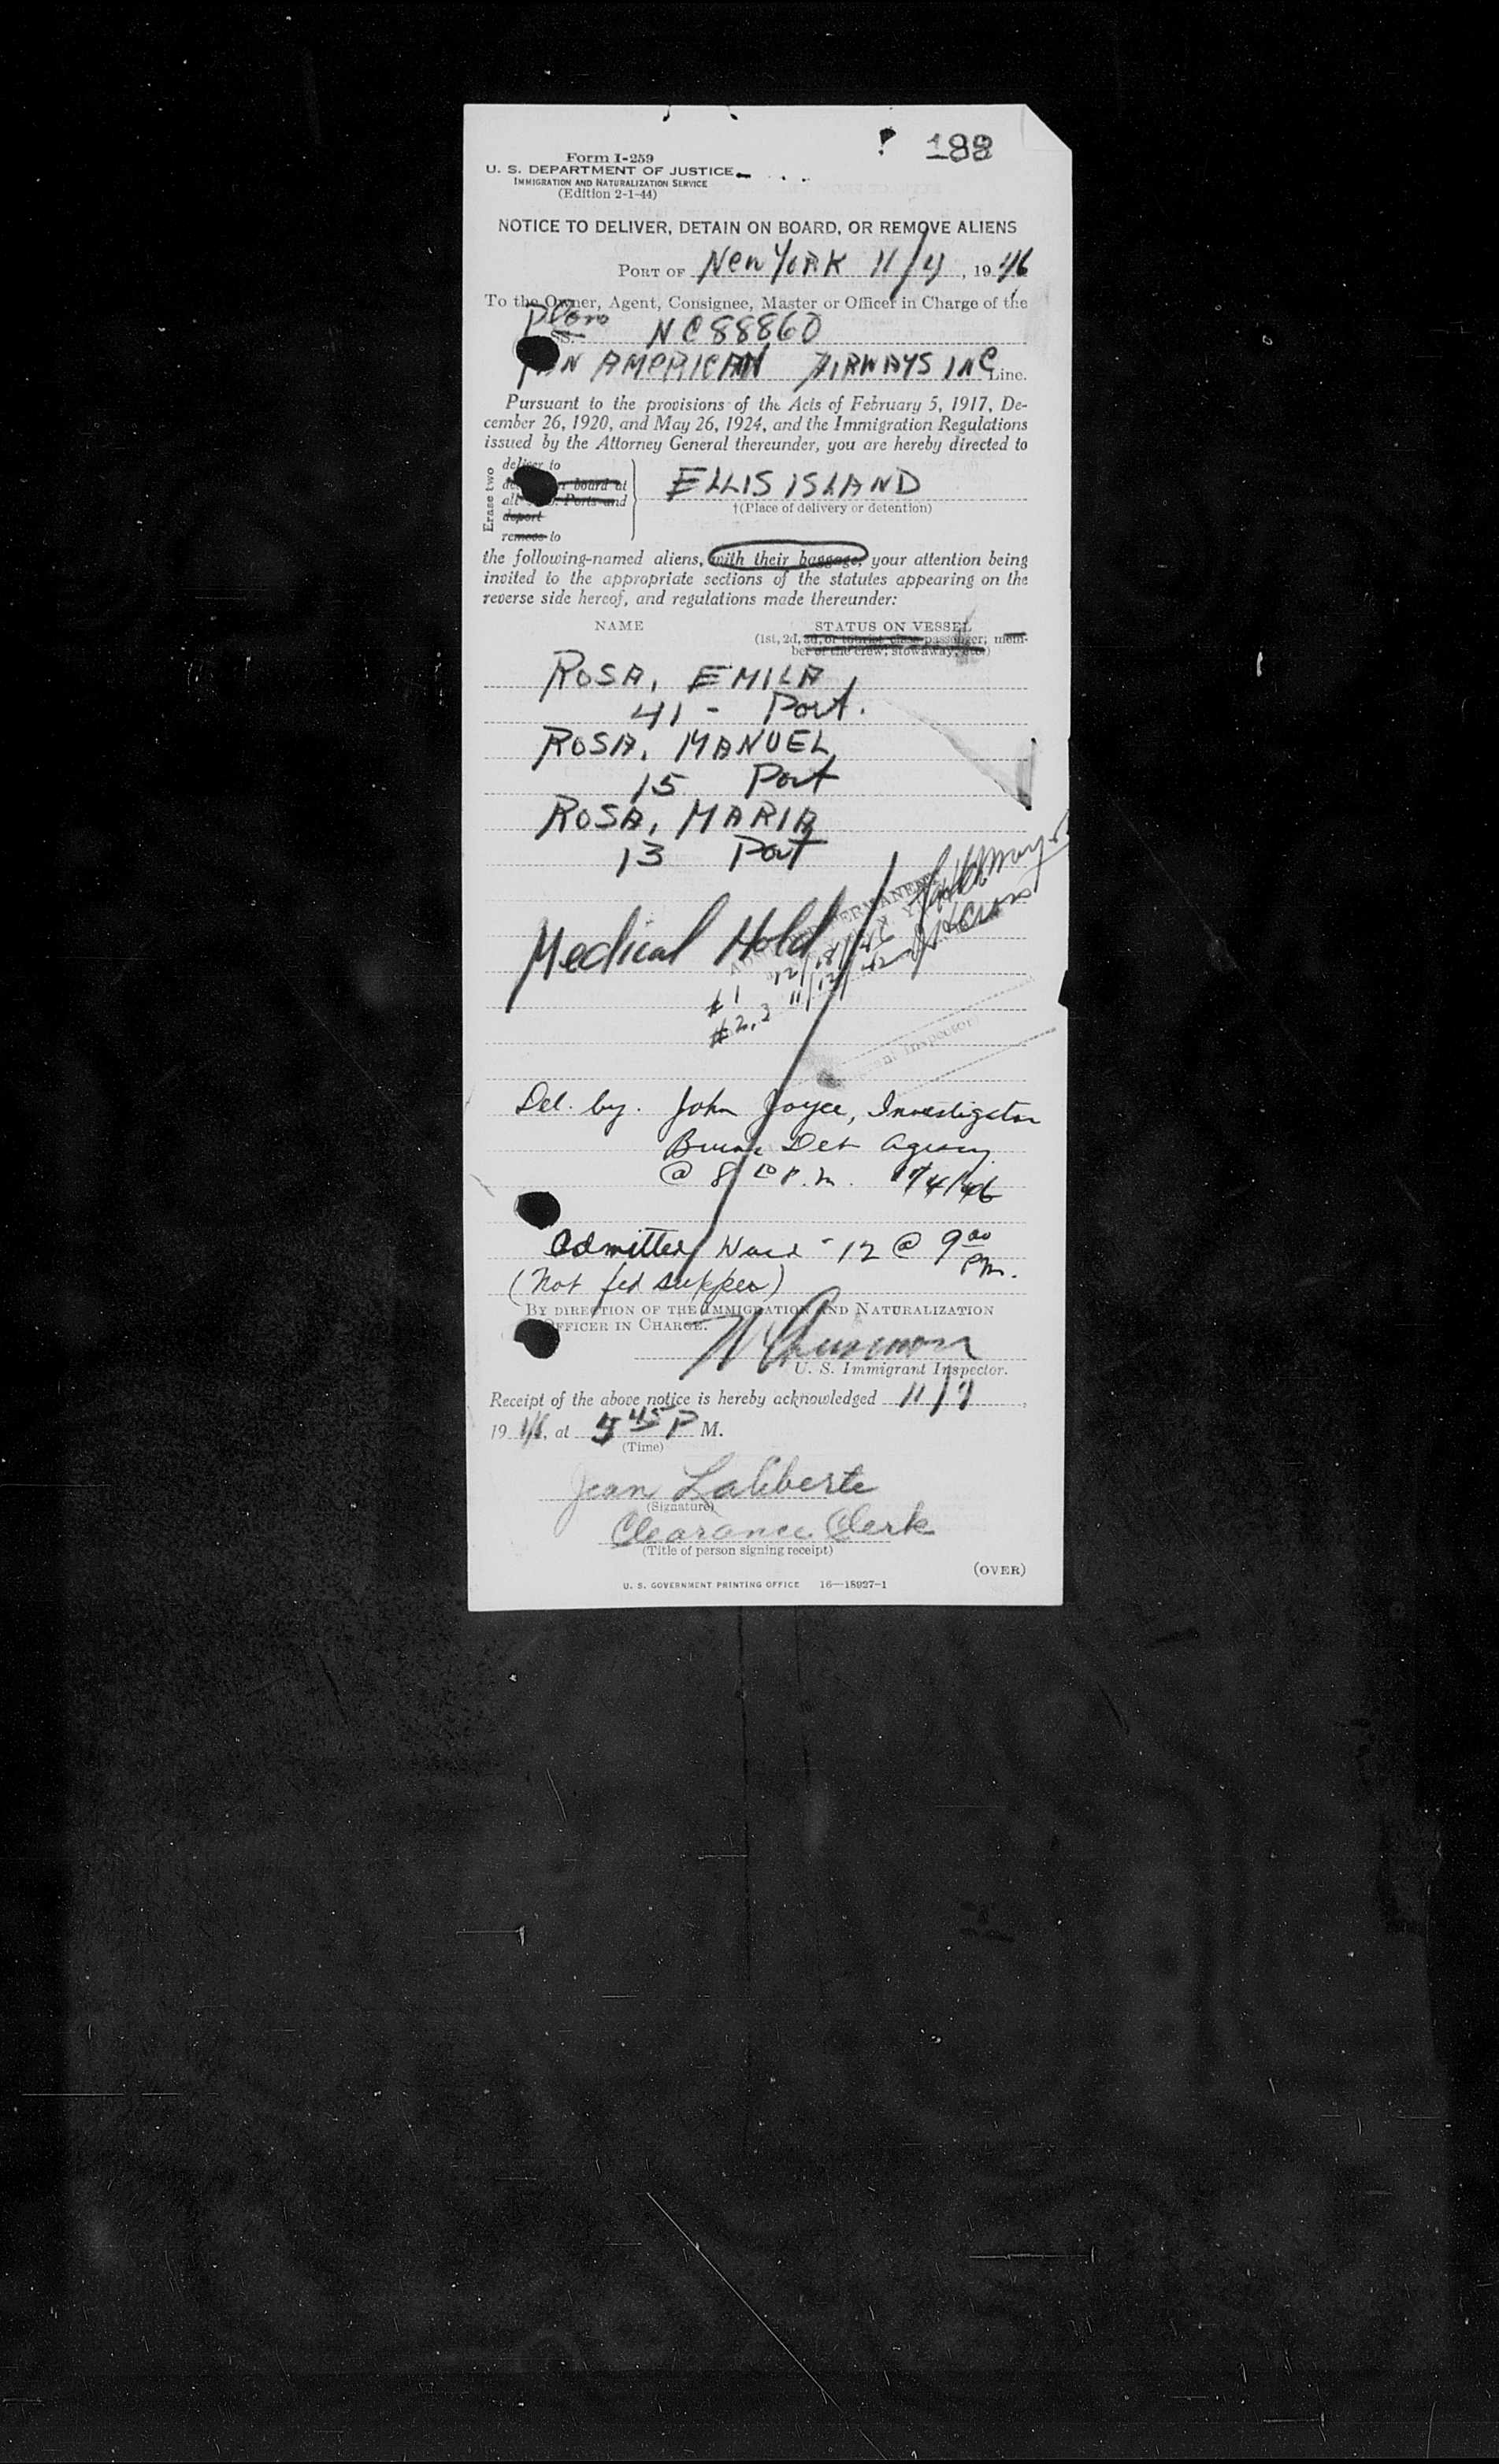 188
Form I-259
U. S. DEPARTMENT OF JUSTICE
IMMIGRATION AND NATURALIZATION SERVICE
(Edition 2-1-44)
NOTICE TO DELIVER, DETAIN ON BOARD, OR REMOVE ALIENS
PORT OF New YORK 11/4, 1946
To the Owner, Agent, Consignee, Master or Officer in Charge of the
SS. NC88860
AMERICAN AIRWAYS INC Line.
Pursuant to the provisions of the Acts of February 5, 1917, De-
cember 26, 1920, and May 26, 1924, and the Immigration Regulations
issued by the Attorney General thereunder, you are hereby directed to
Erase two
deliver to
board at
all Ports and
deport
remove to
ELLIS ISLAND
†(Place of delivery or detention)
the following-named aliens, with their baggage, your attention being
invited to the appropriate sections of the statutes appearing on the
reverse side hereof, and regulations made thereunder:
NAME STATUS ON VESSEL
(1st, 2d, 3d, or tourist class passenger; mem-
ber of the crew; stowaway, etc.)
ROSA, EMILA
41 - Port.
ROSA, MANUEL
15 Port
ROSA, MARIA
13 Port
Medical Hold
#1
#2,3
Inspector
Del. by. John Joyce, Investigator
Det Agency
@ 8 10 P.m. 11/4/46
Admitted Ward - 12 @ 9 00 Pm.
(Not fed supper)
BY DIRECTION OF THE IMMIGRATION AND NATURALIZATION
OFFICER IN CHARGE.
U. S. Immigrant Inspector.
Receipt of the above notice is hereby acknowledged 11/4,
1946, at 5 45 P M.
(Time)
Jean Laliberte
(Signature)
Clearance Clerk
(Title of person signing receipt)
(OVER)
U. S. GOVERNMENT PRINTING OFFICE 16—18927-1